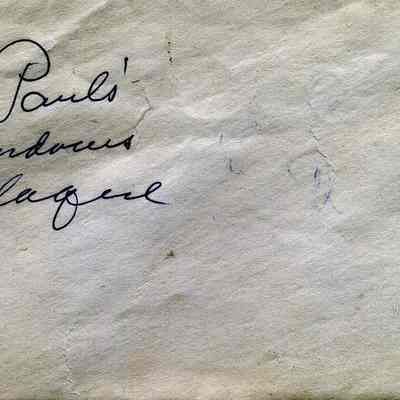 Pauls'
ndows
laque